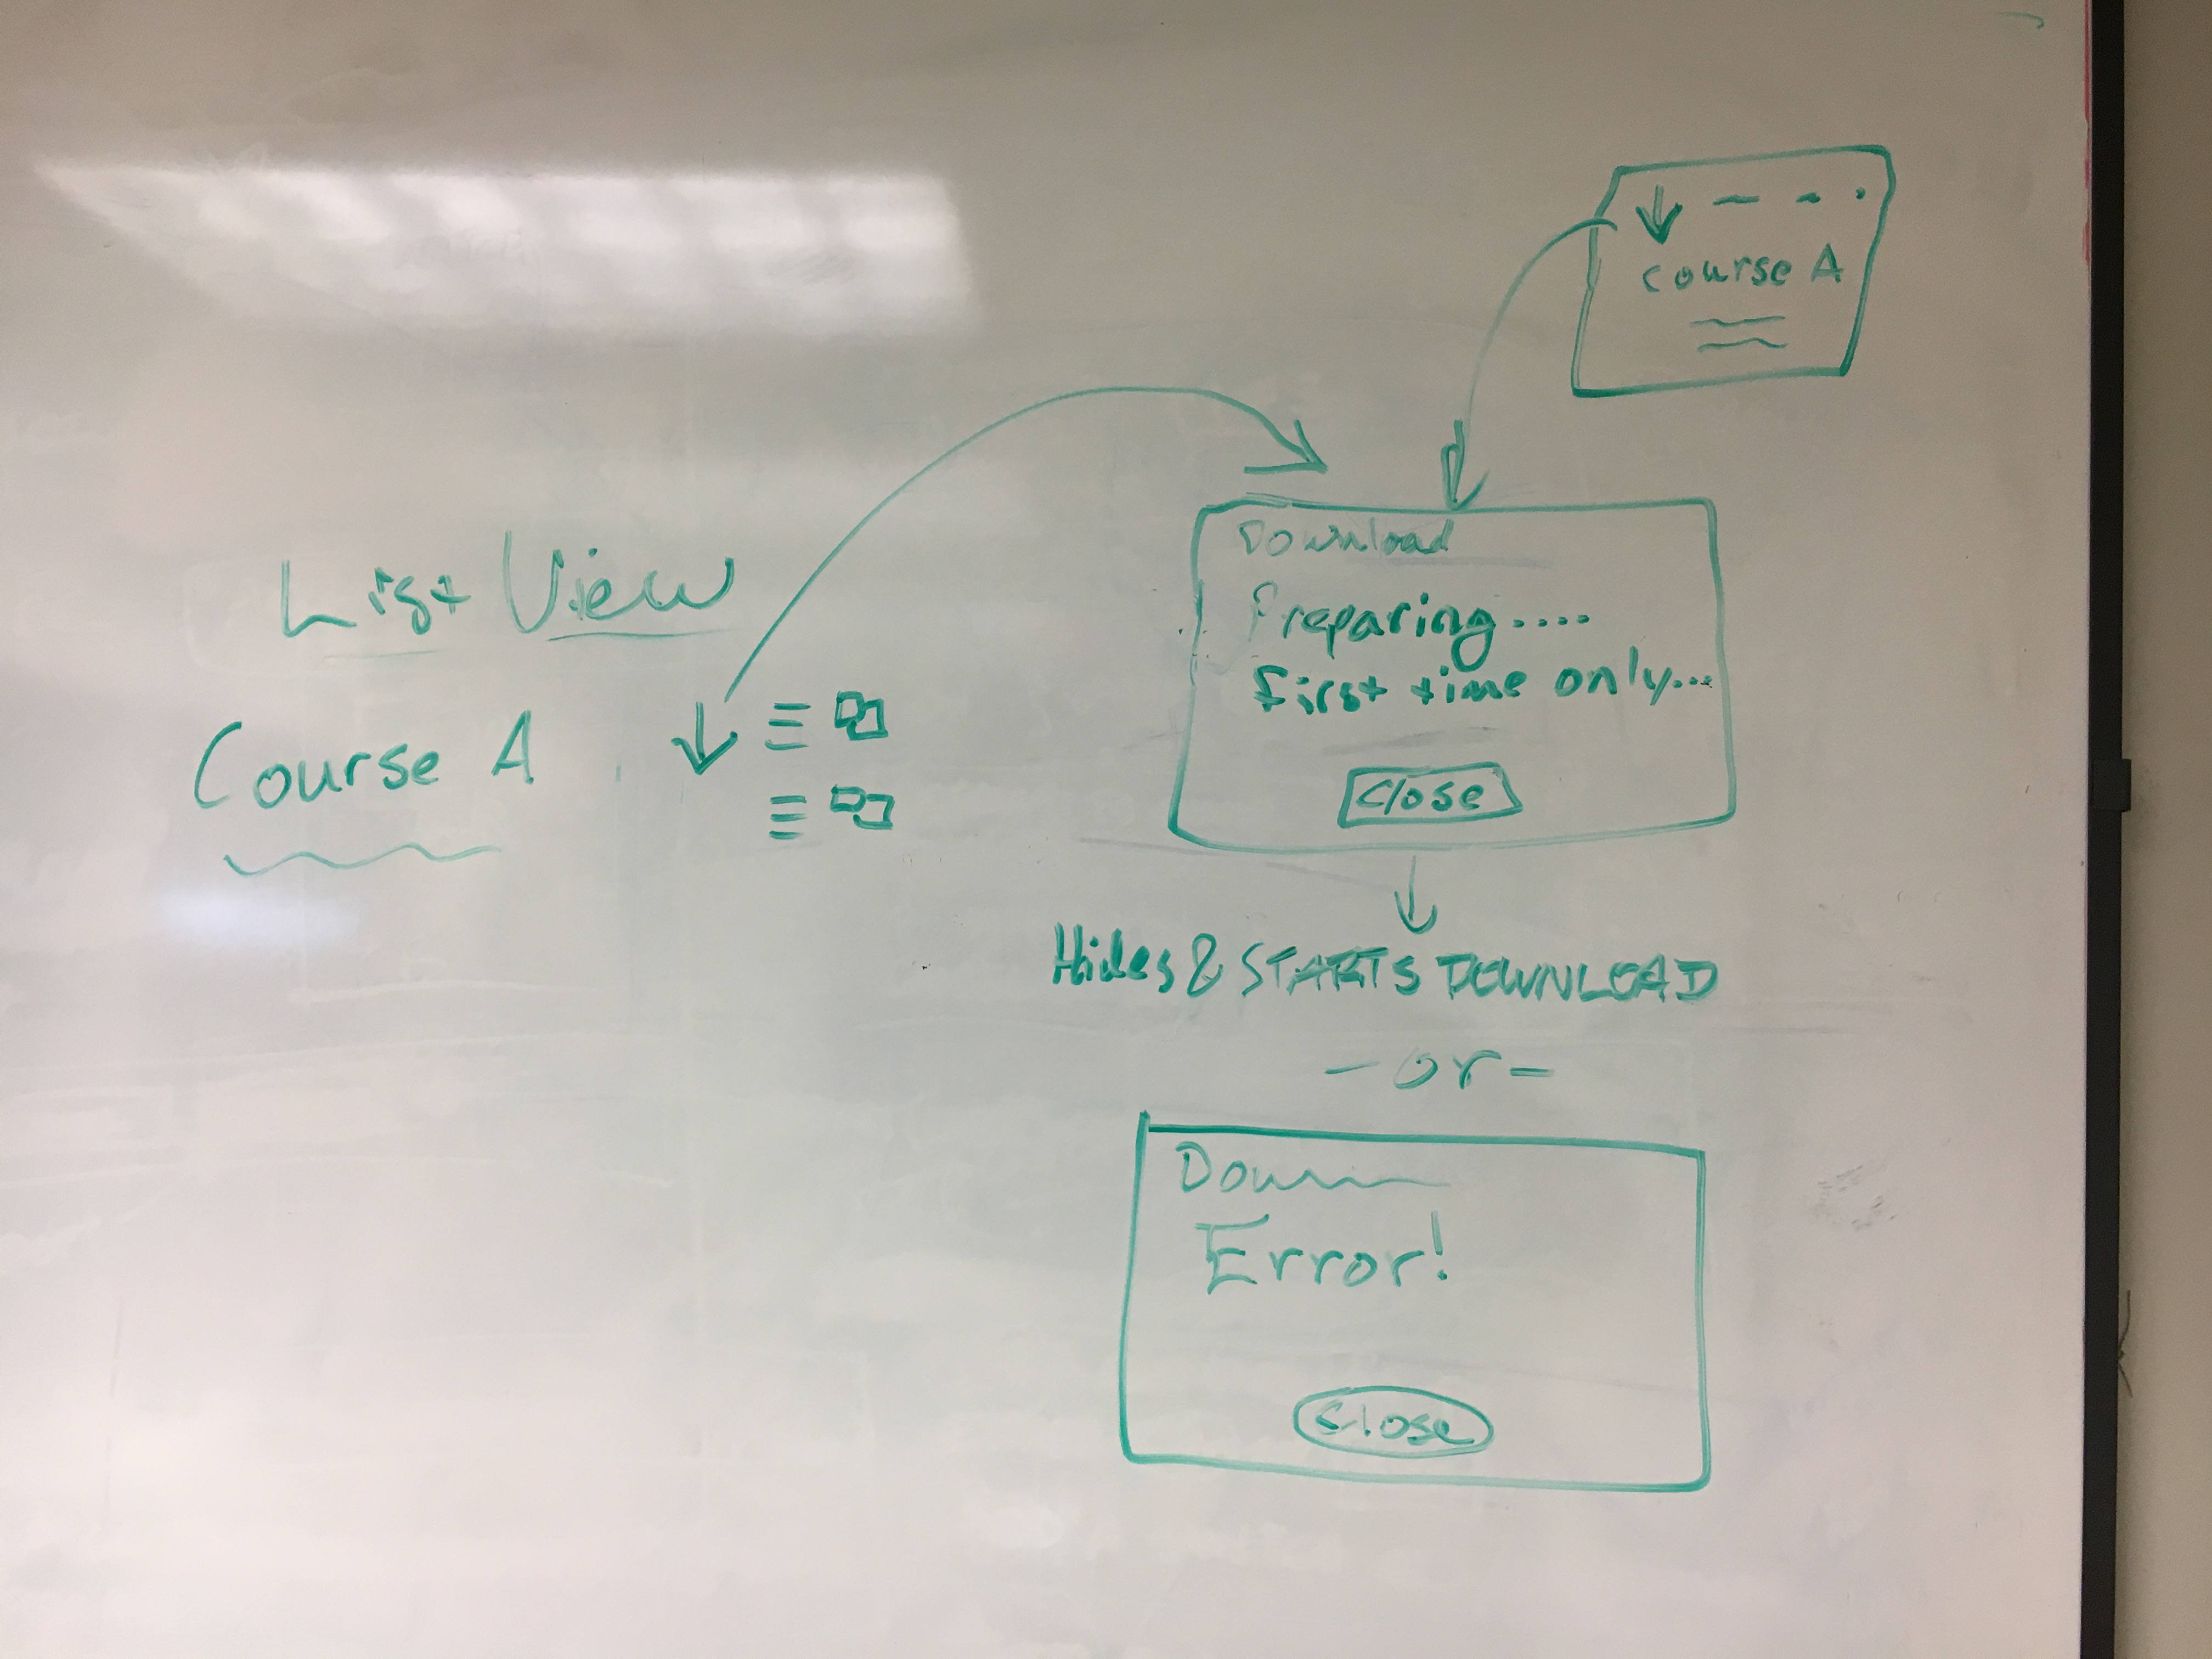 course A
List View
Course A
Download
Preparing....
first time only...
Close
Hides & STARTS DOWNLOAD
- or -
Down
Error!
Close